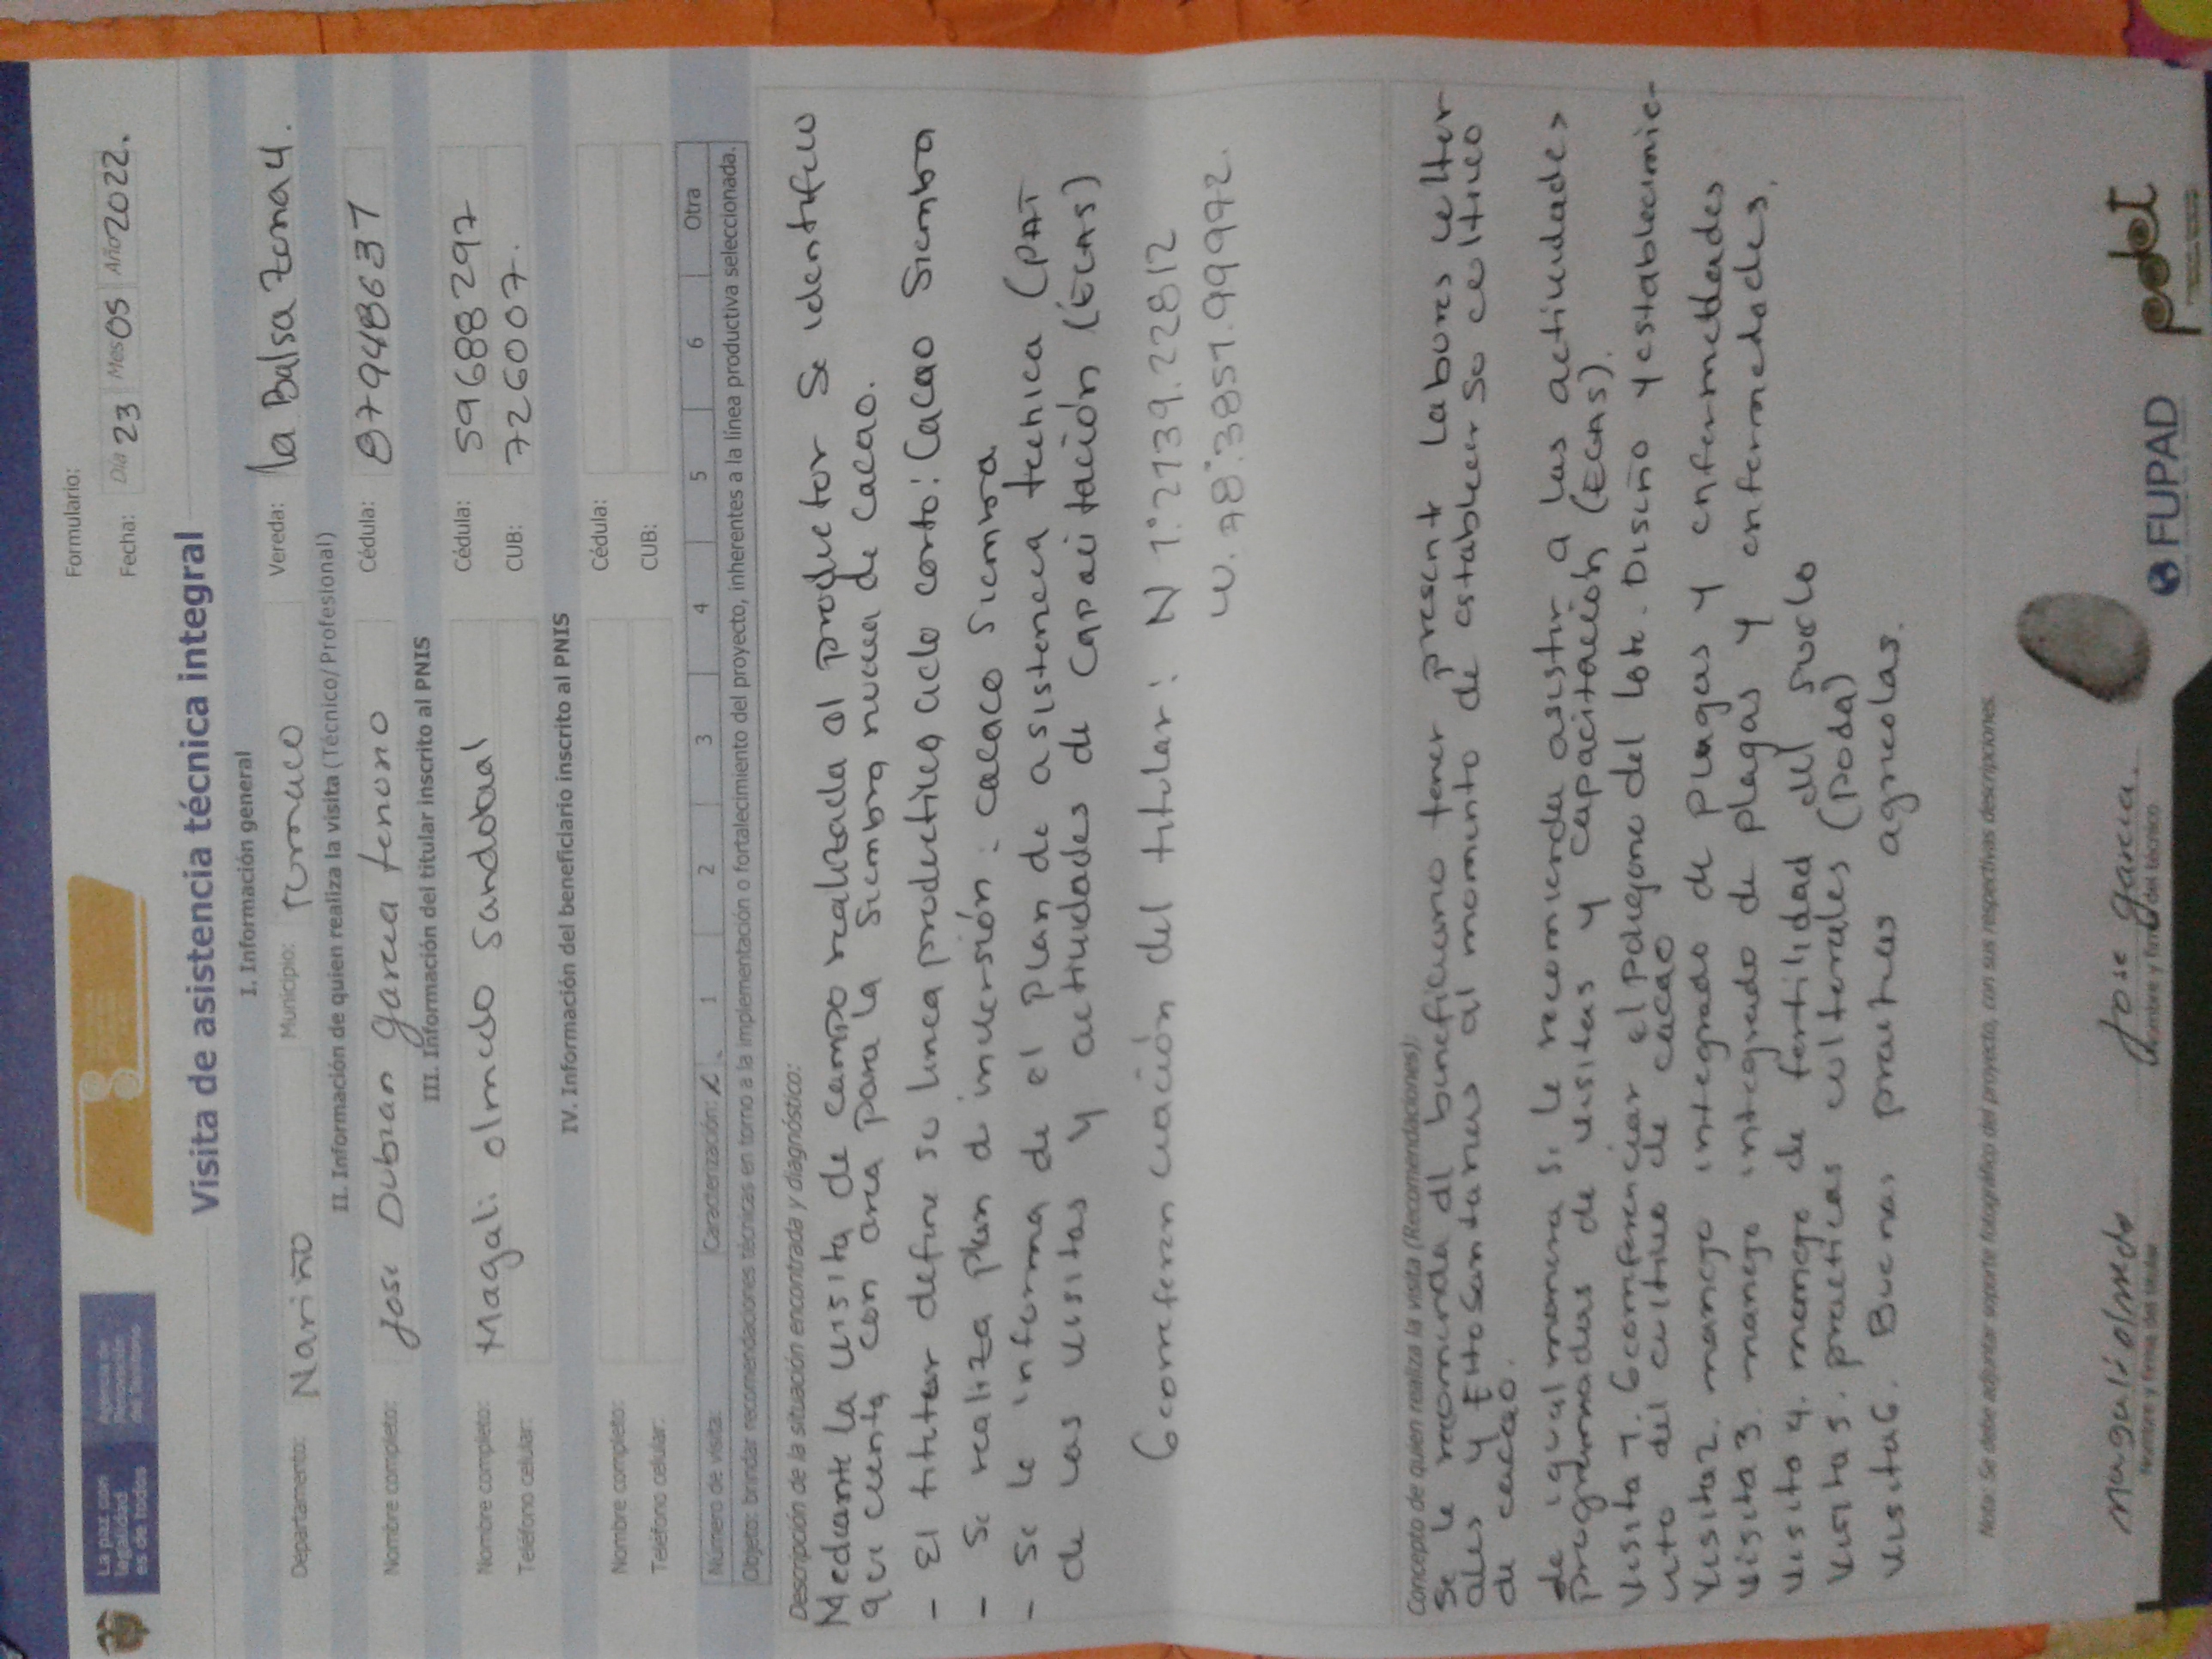 La paz con legalidad es de todos
Agencia de Renovación del Territorio
Formulario:
Fecha: Día 23 Mes 05 Año 2022.
Visita de asistencia técnica integral
I. Información general
Departamento: Nariño Municipio: Tumaco Vereda: la Balsa Zona 4.
II. Información de quien realiza la visita (Técnico/Profesional)
Nombre completo: Jose Dubian Garcia tenorio Cédula: 87948637
III. Información del titular inscrito al PNIS
Nombre completo: Magali olmedo Sandobal Cédula: 59688297
Teléfono celular: CUB: 726007.
IV. Información del beneficiario inscrito al PNIS
Nombre completo: Cédula:
Teléfono celular: CUB:
Número de visita: Caracterización: X 1 2 3 4 5 6 Otra
Objeto: brindar recomendaciones técnicas en torno a la implementación o fortalecimiento del proyecto, inherentes a la línea productiva seleccionada.
Descripción de la situación encontrada y diagnóstico:
Mediante la visita de campo realizada al productor Se identifico
que cuenta con area para la Siembra nueva de Cacao.
- El titular define su linea productiva ciclo corto: Cacao Siembra
- Se realiza plan d inversión: cacao Siembra
- Se le informa de el plan de asistencia tecnica (PAT
de las visitas y actividades de Capacitación (ECAS)
Georeferenciación del titular: N 1°2139.22812
W.78°3851.99992.
Concepto de quien realiza la visita (Recomendaciones):
Se le recomienda al beneficiario tener present labores culter
ales y Fitosanitarias al momento de establecer su cultivo
de cacao.
de igual manera se le recomienda asistir a las actividades
programadas de visitas y capacitación (ECAS).
Visita 1. Georeferenciar el poligono del lote. Diseño y establecimie-
nto del cultivo de cacao
Visita 2. manejo integrado de plagas y enfermedades
Visita 3. manejo integrado de plagas y enfermedades.
Visita 4. manejo de fertilidad del suelo
Visita 5. practicas culturales (Poda)
Visita 6. Buenas practicas agricolas.
Nota: Se debe adjuntar soporte fotográfico del proyecto, con sus respectivas descripciones.
magali olmedo
Nombre y firma del titular
Jose garcia.
Nombre y firma del técnico
FUPAD
pedet